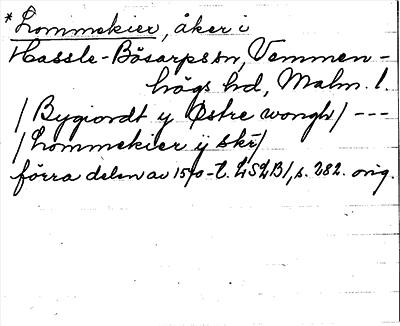 *Lommekier, åker i
Hassle-Bösarps sn, Vemmen-
högs hd, Malm. l.
/Bygiordt y Østre wongh/ ---
/Lommekier ÿ skr/
förra delen av 1570-t. LSLB1, s. 282. orig.